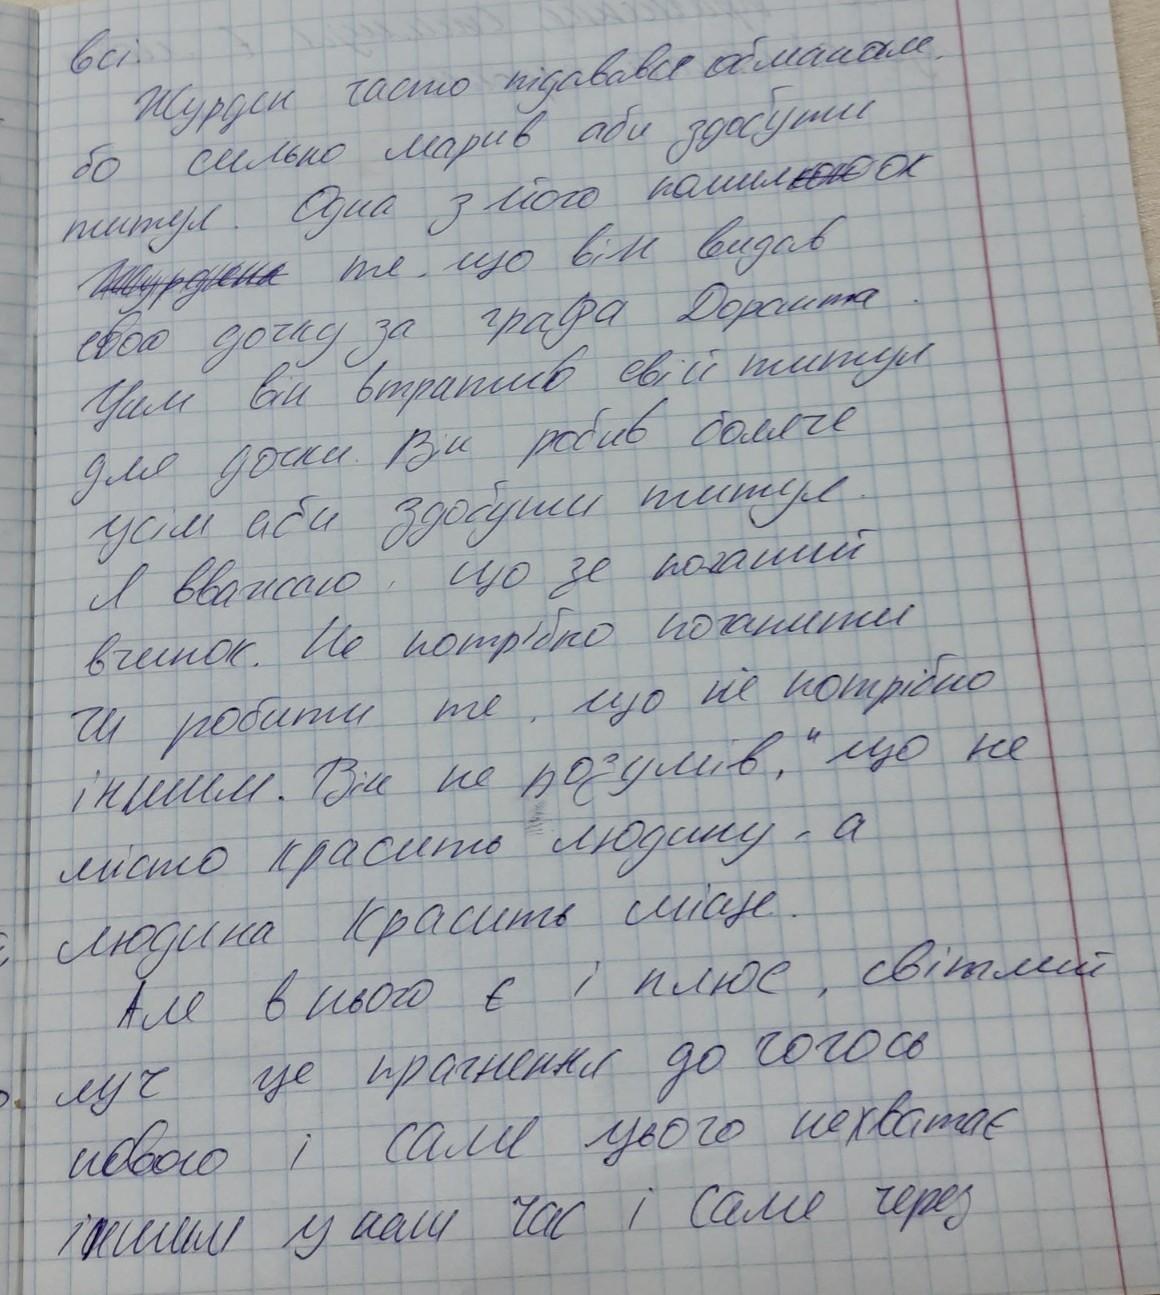 всі.
Журден часто підавався обманам,
бо сильно марив аби здобути
титул. Одна з його помилок
те, що він видав
свою дочку за графа Доранта.
Цим він втратив свій титул
для дочки. Він робив боляче
усім аби здобути титул.
Я вважаю, що зе поганий
вчинок. Не потрібно поганити
чи робити те, що не потрібно
іншим. Він не розумів, "що не
місто красить людину, а
людина красить місце.
Але в нього є і плюс, світлий
луч це прагнення до чогось
нового і саме цього нехватає
іншим у наш час і саме через